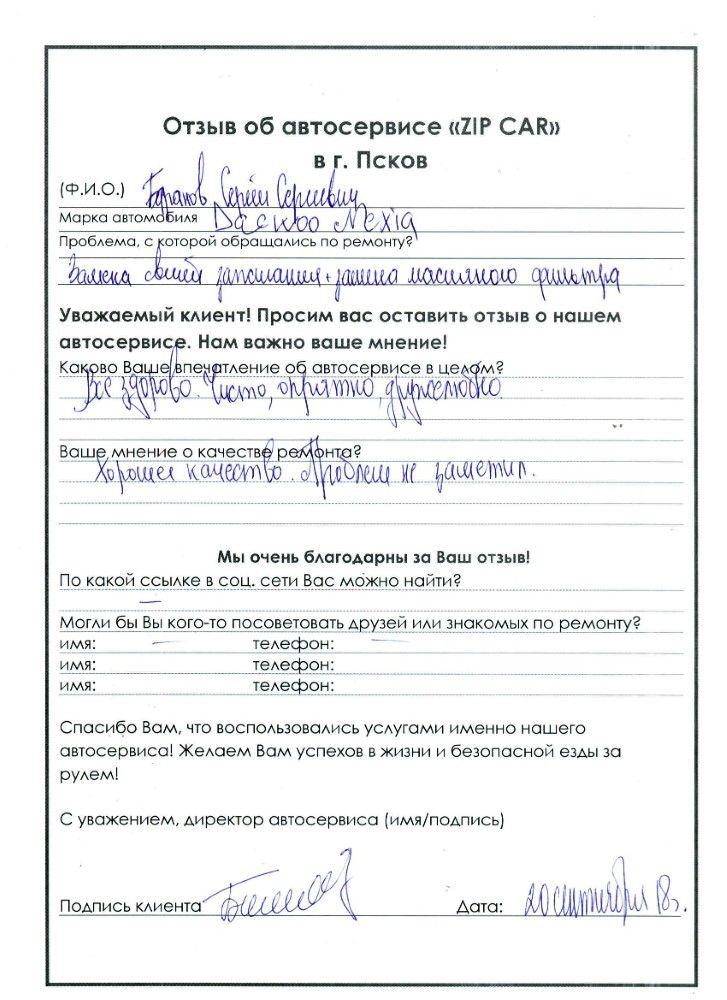 Отзыв об автосервисе «ZIP CAR»
в г. Псков
(Ф.И.О.) Баранов Сергей Сергеевич
Марка автомобиля Daewoo Nexia
Проблема, с которой обращались по ремонту?
Замена свечей зажигания + замена масляного фильтра
Уважаемый клиент! Просим вас оставить отзыв о нашем
автосервисе. Нам важно ваше мнение!
Каково Ваше впечатление об автосервисе в целом?
Все здорово. Чисто, опрятно, дружелюбно.
Ваше мнение о качестве ремонта?
Хорошее качество. Проблем не заметил.
Мы очень благодарны за Ваш отзыв!
По какой ссылке в соц. сети Вас можно найти?
—
Могли бы Вы кого-то посоветовать друзей или знакомых по ремонту?
имя: — телефон: —
имя: телефон:
имя: телефон:
Спасибо Вам, что воспользовались услугами именно нашего
автосервиса! Желаем Вам успехов в жизни и безопасной езды за
рулем!
С уважением, директор автосервиса (имя/подпись)
Подпись клиента Дата: 20 сентября 18г.